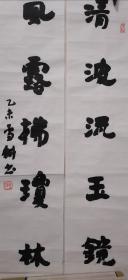 清波沉玉鏡
風露拂瓊林
乙未雪樹書